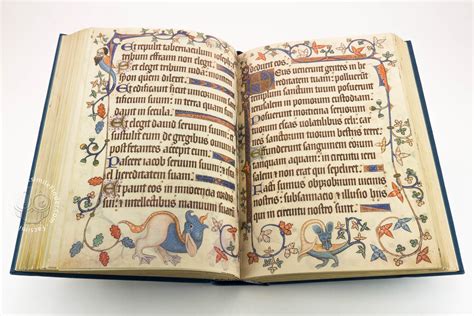 Et repulit tabernaculum ioseph
tribum effraim non elegit
Et elegit tribum iuda
syon quem dilexit
suum in terra
in secula
Et elegit dauid seruum suum et
sustulit eum de gregibus
post fetantes accepit eum
Pascere iacob seruum suum
hereditatem suam
Et pauit eos in innocencia cordis
sui et in intellectibus manuum
deduxit eos
Deus uenerunt gentes in
hereditatem tuam polluerunt
templum sanctum tuum posuerunt
ierusalem in pomorum custodiam
Posuerunt morticina seruorum
tuorum escas uolatilibus celi carnes
sanctorum tuorum bestiis terre
Effuderunt sanguinem
tanquam aquam in circuitu
ierusalem et non erat qui sepeliret
Facti sumus obprobrium uicinis
nostris subsannacio et illusio hiis
qui in circuitu nostro sunt